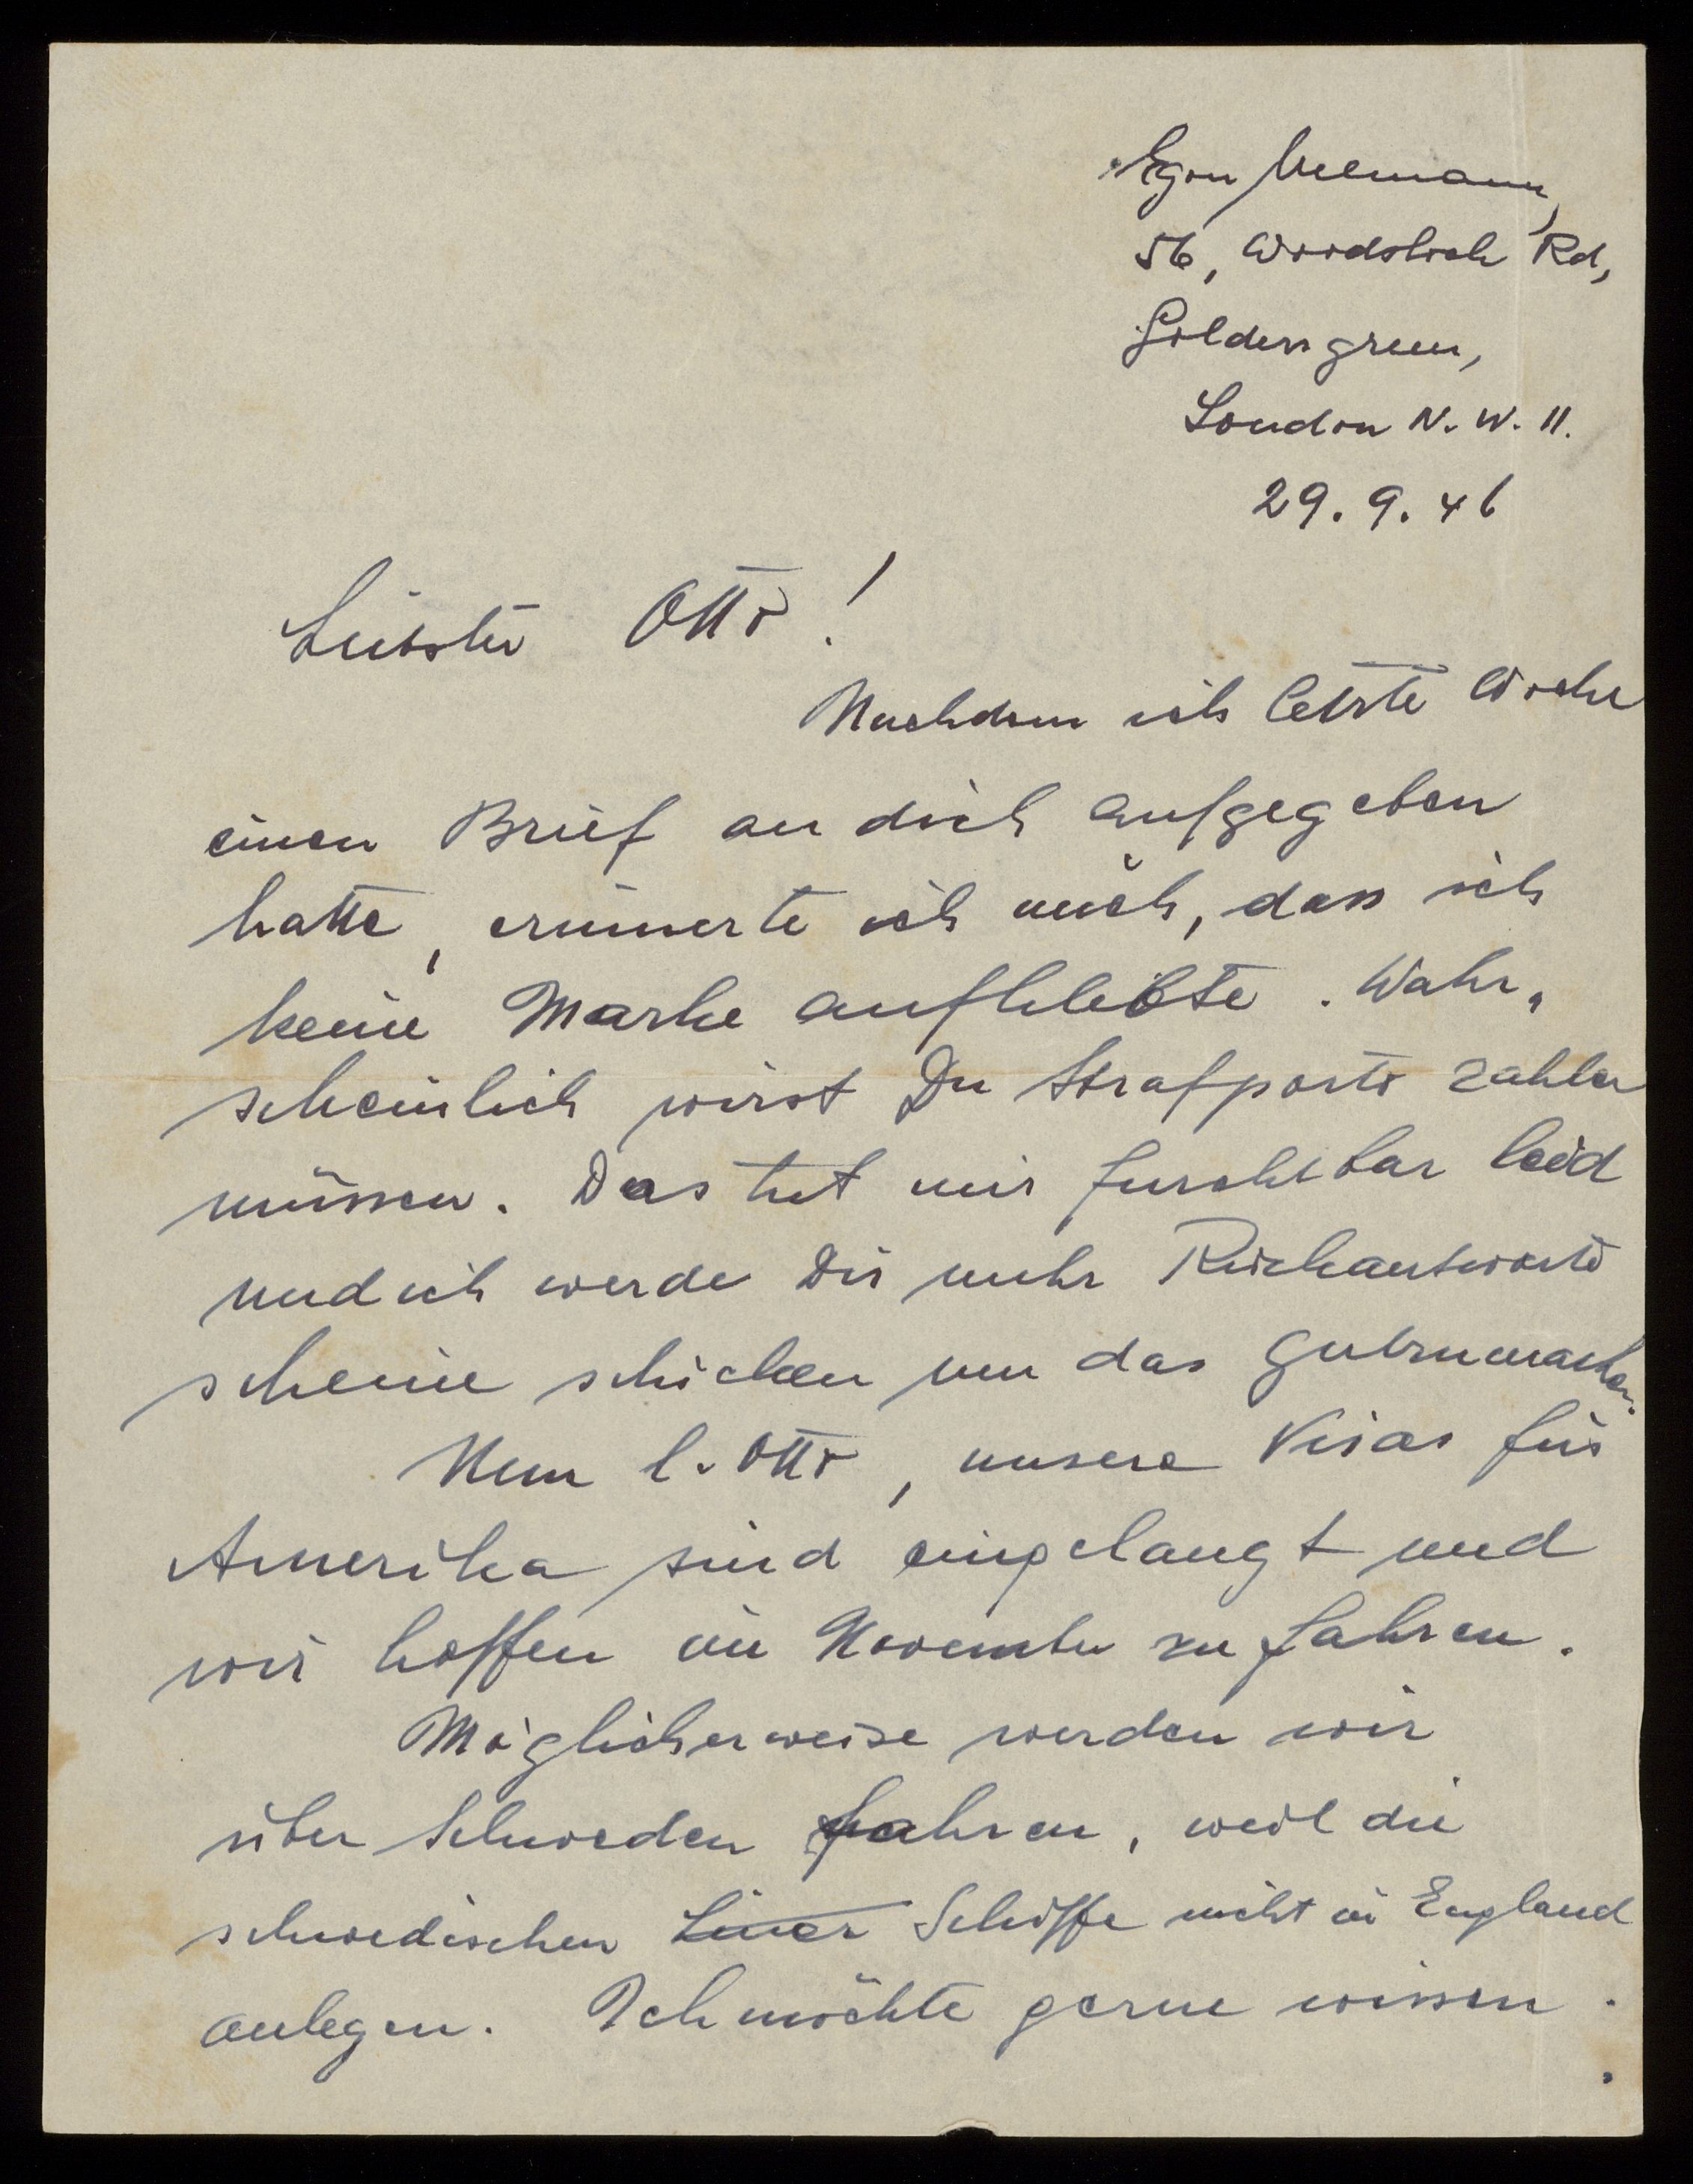 Egon Neumann,
56, Woodstock Rd,
Golders green,
London N. W. 11.
29. 9. 46
Liebster Otto!
Nachdem ich letzte Woche
einen Brief an dich aufgegeben
hatte, erinnerte ich mich, dass ich
keine Marke aufklebte. Wahr-
scheinlich wirst Du Strafporto zahlen
müssen. Das tut mir furchtbar leid
und ich werde Dir mehr Rückantwort
scheine schicken um das gutzumachen.
Nun l. Otto, unsere Visas für
Amerika sind eingelangt und
wir hoffen im November zu fahren.
Möglicherweise werden wir
über Schweden fahren, weil die
schwedischen Liner Schiffe nicht in England
anlegen. Ich möchte gerne wissen